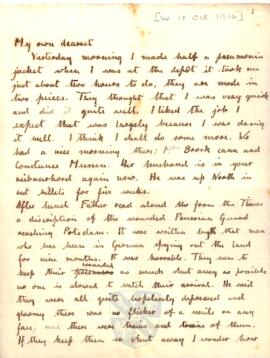 [W 11 Oct 1916]
1
My own dearest
Yesterday morning I made half a pneumonia
jacket when I was at the depôt it took me
just about two hours to do, they are made in
two pieces. They thought that I was very quick
and did it quite well. I liked the job I
expect that was largely because I was doing
it well. I think I shall do some more. We
had a nice morning there; Mrs Brock came and
Constance Musson. Her husband is in your
neibourhood again now. He was up North in
rest billets for five weeks.
After lunch Father read aloud Mrs from the Times
a discription of the wounded Prussian Guard
reaching Potsdam. It was written by that man
who has been in German spying out the land
for nine months. It was horrible. They seem to
wounded
keep their as much shut away as possible
no one is alowed to watch their arrival. He said
they were all quite hopelessly depressed and
gloomy there was no flicker of a smile on any
face, and there were trains and trains of them.
If they keep them so shut away I wonder how